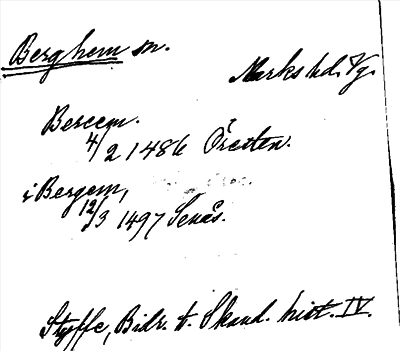 Berghem sn.
Marks hd. Vg.
Bereem.
4/2 1486 Öresten.
i Bergem,
12/3 1497 Senås.
Styffe, Bidr. t. Skand. hist. IV.